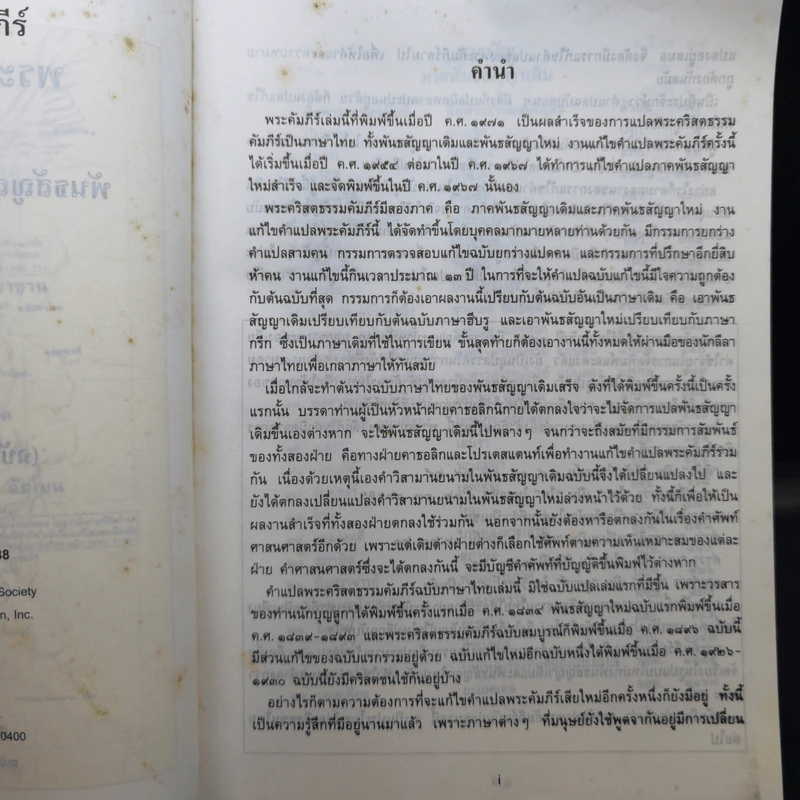 กีร์
38
Society
n, Inc.
0400
คำนำ
พระคัมภีร์เล่มนี้ที่พิมพ์ขึ้นเมื่อปี ค.ศ. ๑๙๗๑ เป็นผลสำเร็จของการแปลพระคริสตธรรม
คัมภีร์เป็นภาษาไทย ทั้งพันธสัญญาเดิมและพันธสัญญาใหม่ งานแก้ไขคำแปลพระคัมภีร์ครั้งนี้
ได้เริ่มขึ้นเมื่อปี ค.ศ. ๑๙๕๔ ต่อมาในปี ค.ศ. ๑๙๖๗ ได้ทำการแก้ไขคำแปลภาคพันธสัญญา
ใหม่สำเร็จ และจัดพิมพ์ขึ้นในปี ค.ศ. ๑๙๖๗ นั้นเอง
พระคริสตธรรมคัมภีร์มีสองภาค คือ ภาคพันธสัญญาเดิมและภาคพันธสัญญาใหม่ งาน
แก้ไขคำแปลพระคัมภีร์นี้ ได้จัดทำขึ้นโดยบุคคลมากมายหลายท่านด้วยกัน มีกรรมการยกร่าง
คำแปลสามคน กรรมการตรวจสอบแก้ไขฉบับยกร่างแปดคน และกรรมการที่ปรึกษาอีกยี่สิบ
ห้าคน งานแก้ไขนี้กินเวลาประมาณ ๑๓ ปี ในการที่จะให้คำแปลฉบับแก้ไขนี้มีใจความถูกต้อง
กับต้นฉบับที่สุด กรรมการก็ต้องเอาผลงานนี้เปรียบกับต้นฉบับอันเป็นภาษาเดิม คือ เอาพันธ
สัญญาเดิมเปรียบเทียบกับต้นฉบับภาษาฮีบรู และเอาพันธสัญญาใหม่เปรียบเทียบกับภาษา
กรีก ซึ่งเป็นภาษาเดิมที่ใช้ในการเขียน ขั้นสุดท้ายก็ต้องเอางานนี้ทั้งหมดให้ผ่านมือของนักลีลา
ภาษาไทยเพื่อเกลาภาษาให้ทันสมัย
เมื่อใกล้จะทำต้นร่างฉบับภาษาไทยของพันธสัญญาเดิมเสร็จ ดังที่ได้พิมพ์ขึ้นครั้งนี้เป็นครั้ง
แรกนั้น บรรดาท่านผู้เป็นหัวหน้าฝ่ายคาธอลิกนิกายได้ตกลงใจว่าจะไม่จัดการแปลพันธสัญญา
เดิมขึ้นเองต่างหาก จะใช้พันธสัญญาเดิมนี้ไปพลางๆ จนกว่าจะถึงสมัยที่มีกรรมการสัมพันธ์
ของทั้งสองฝ่าย คือทางฝ่ายคาธอลิกและโปรเตสแตนท์เพื่อทำงานแก้ไขคำแปลพระคัมภีร์ร่วม
กัน เนื่องด้วยเหตุนี้เองคำวิสามานยนามในพันธสัญญาเดิมฉบับนี้จึงได้เปลี่ยนแปลงไป และ
ยังได้ตกลงเปลี่ยนแปลงคำวิสามานยนามในพันธสัญญาใหม่ล่วงหน้าไว้ด้วย ทั้งนี้ก็เพื่อให้เป็น
ผลงานสำเร็จที่ทั้งสองฝ่ายตกลงใช้ร่วมกัน นอกจากนั้นยังต้องหารือตกลงกันในเรื่องคำศัพท์
ศาสนศาสตร์อีกด้วย เพราะแต่เดิมต่างฝ่ายต่างก็เลือกใช้ศัพท์ตามความเห็นเหมาะสมของแต่ละ
ฝ่าย คำศาสนศาสตร์ซึ่งจะได้ตกลงกันนี้ จะมีบัญชีคำศัพท์ที่บัญญัติขึ้นพิมพ์ไว้ต่างหาก
คำแปลพระคริสตธรรมคัมภีร์ฉบับภาษาไทยเล่มนี้ มิใช่ฉบับแปลเล่มแรกที่มีขึ้น เพราะวรสาร
ของท่านนักบุญลูกาได้พิมพ์ขึ้นครั้งแรกเมื่อ ค.ศ. ๑๘๓๔ พันธสัญญาใหม่ฉบับแรกพิมพ์ขึ้นเมื่อ
ค.ศ. ๑๘๓๙-๑๘๙๓ และพระคริสตธรรมคัมภีร์ฉบับสมบูรณ์ก็พิมพ์ขึ้นเมื่อ ค.ศ. ๑๘๙๖ ฉบับนี้
มีส่วนแก้ไขของฉบับแรกรวมอยู่ด้วย ฉบับแก้ไขใหม่อีกฉบับหนึ่งได้พิมพ์ขึ้นเมื่อ ค.ศ. ๑๙๒๖-
๑๙๓๐ ฉบับนี้ยังมีคริสตชนใช้กันอยู่บ้าง
อย่างไรก็ตามความต้องการที่จะแก้ไขคำแปลพระคัมภีร์เสียใหม่อีกครั้งหนึ่งก็ยังมีอยู่ ทั้งนี้
เป็นความรู้สึกที่มีอยู่นานมาแล้ว เพราะภาษาต่างๆ ที่มนุษย์ยังใช้พูดจากันอยู่มีการเปลี่ยน
i